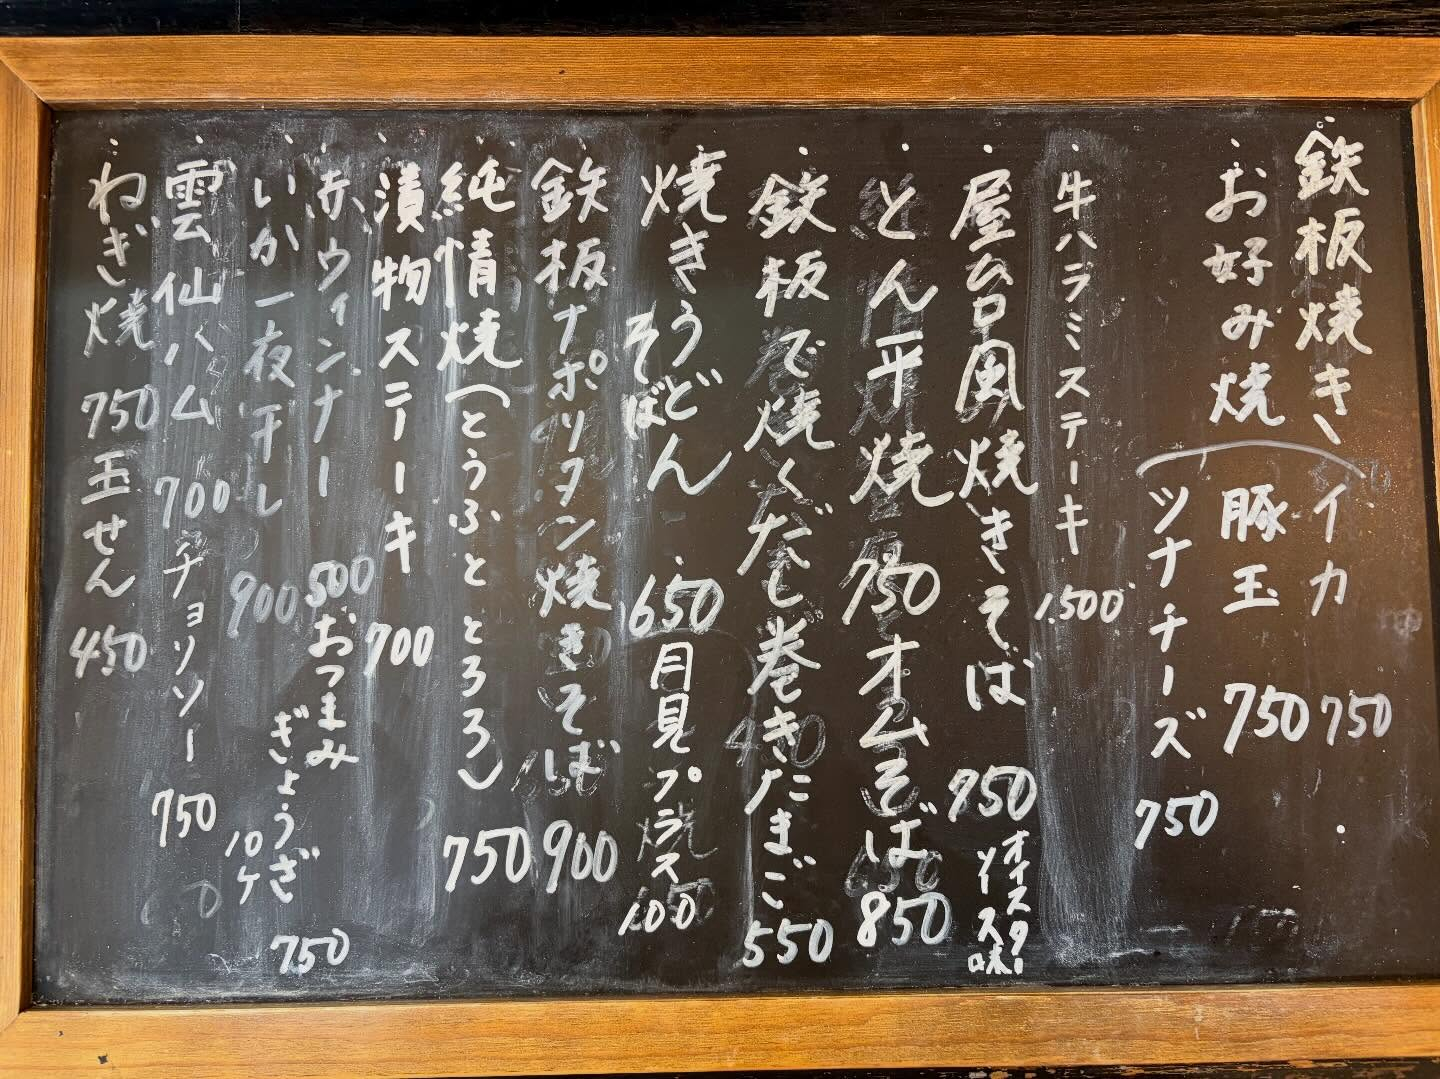 鉄板焼き イカ 750
お好み焼 豚玉 750
ツナチーズ 750
牛ハラミステーキ 1,500
屋台風焼きそば 750 オイスターソース味
とん平焼 750 オムそば 850
鉄板で焼くだし巻きたまご 550
焼きうどん そば 650 月見プラス 100
鉄板ナポリタン焼きそば 900
純情焼(とうふととろろ) 750
漬物ステーキ 700
赤ウィンナー 500 おつまみぎょうざ 10ケ 750
いか一夜干し 900
雲仙ハム 700 チョリソー 750
ねぎ焼 750 玉せん 450